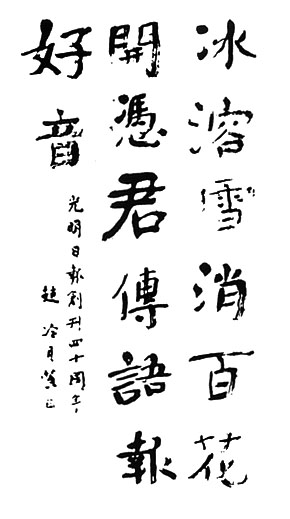 冰溶雪消百花
開憑君傳語報
好音
光明日報創刊四十周年
趙冷月